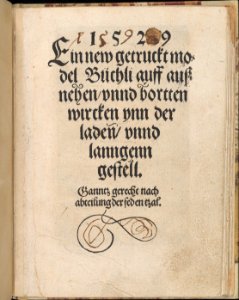 1529
Ein new getruckt mo-
del Büchli auff auß
nehen/vnnd bortten
wircken ynn der
laden/vnnd
lanngenn
gestell.
Ganntz gerecht nach
abteilung der feden tzal.